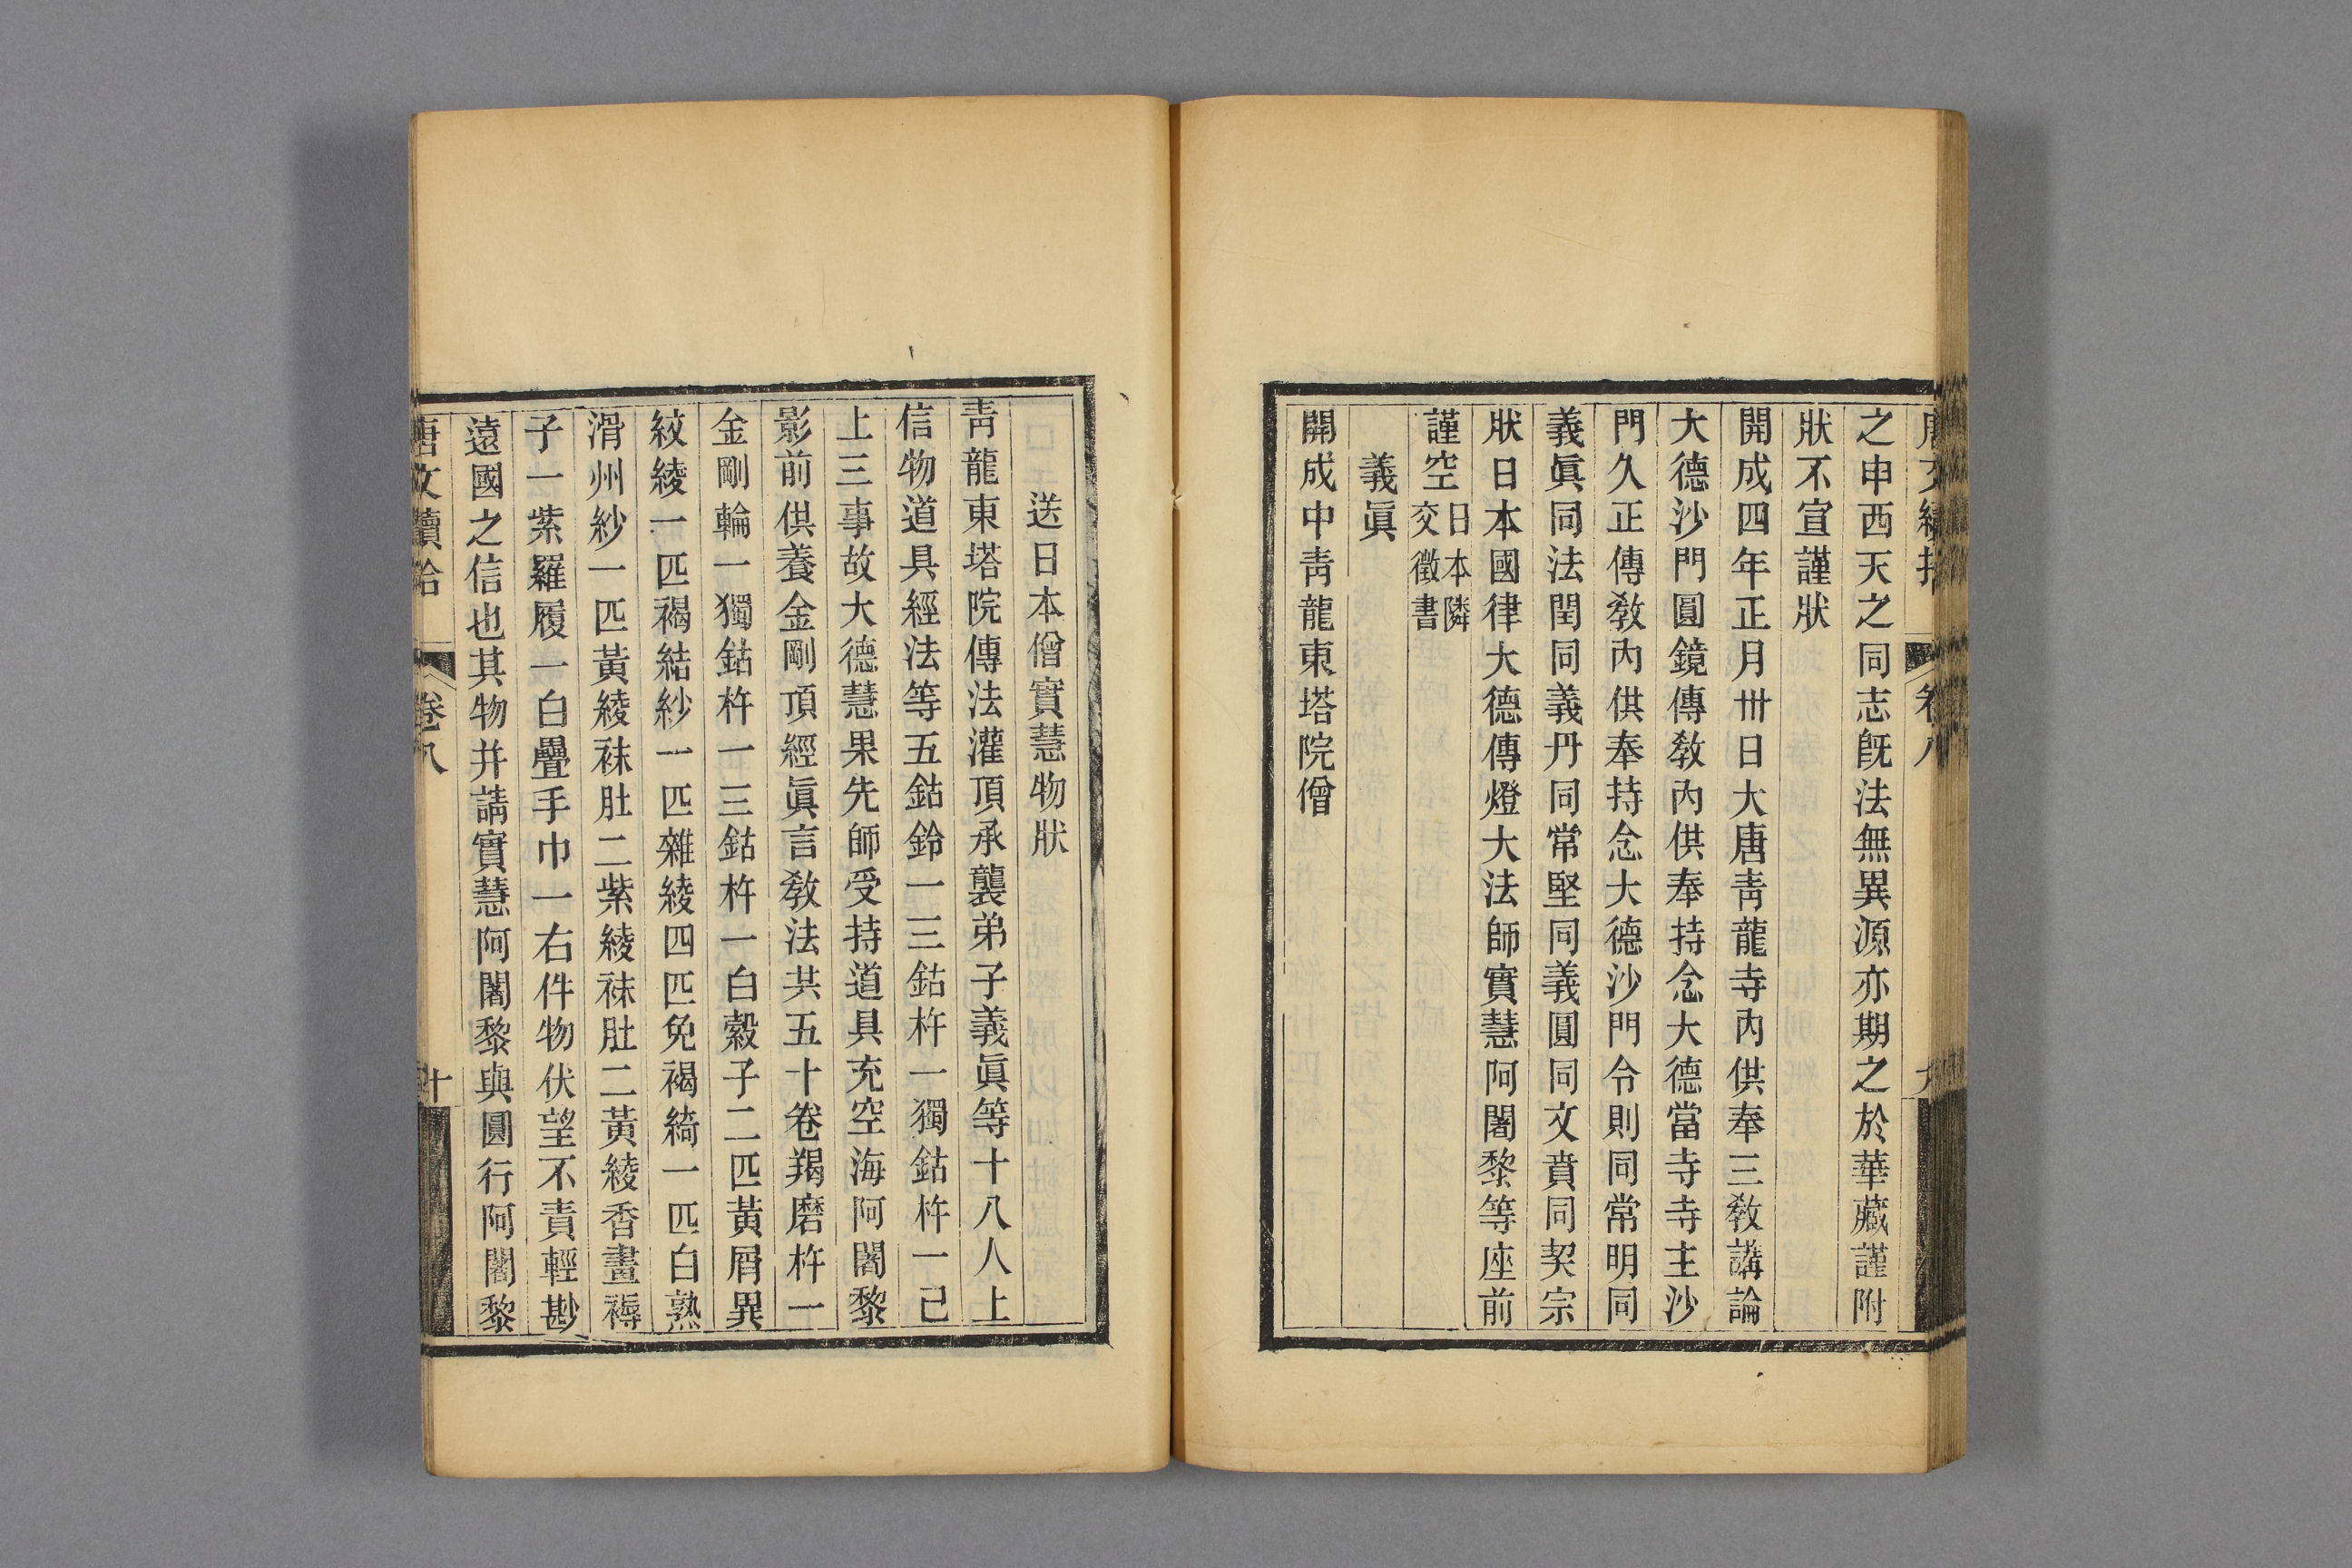 之申西天之同志旣法無異源亦期之於華藏謹附
狀不宣謹狀
開成四年正月卅日大唐靑龍寺內供奉三敎講論
大德沙門圓鏡傳敎內供奉持念大德當寺寺主沙
門久正傳敎內供奉持念大德沙門令則同常明同
義眞同法閏同義丹同常堅同義圓同文賁同契宗
狀日本國律大德傳燈大法師實慧阿闍黎等座前
謹空日本隣交徵書
義眞
開成中靑龍東塔院僧
送日本僧實慧物狀
靑龍東塔院傳法灌頂承襲弟子義眞等十八人上
信物道具經法等五鈷鈴一三鈷杵一獨鈷杵一己
上三事故大德慧果先師受持道具充空海阿闍黎
影前供養金剛頂經眞言敎法共五十卷羯磨杵一
金剛輪一獨鈷杵一三鈷杵一白縠子二匹黃屑異
紋綾一匹褐結紗一匹雜綾四匹免褐綺一匹白熟
滑州紗一匹黃綾袜肚二紫綾袜肚二黃綾香畫褥
子一紫羅履一白疊手巾一右件物伏望不責輕尠
遠國之信也其物并請實慧阿闍黎與圓行阿闍黎
唐文續拾
卷八
十